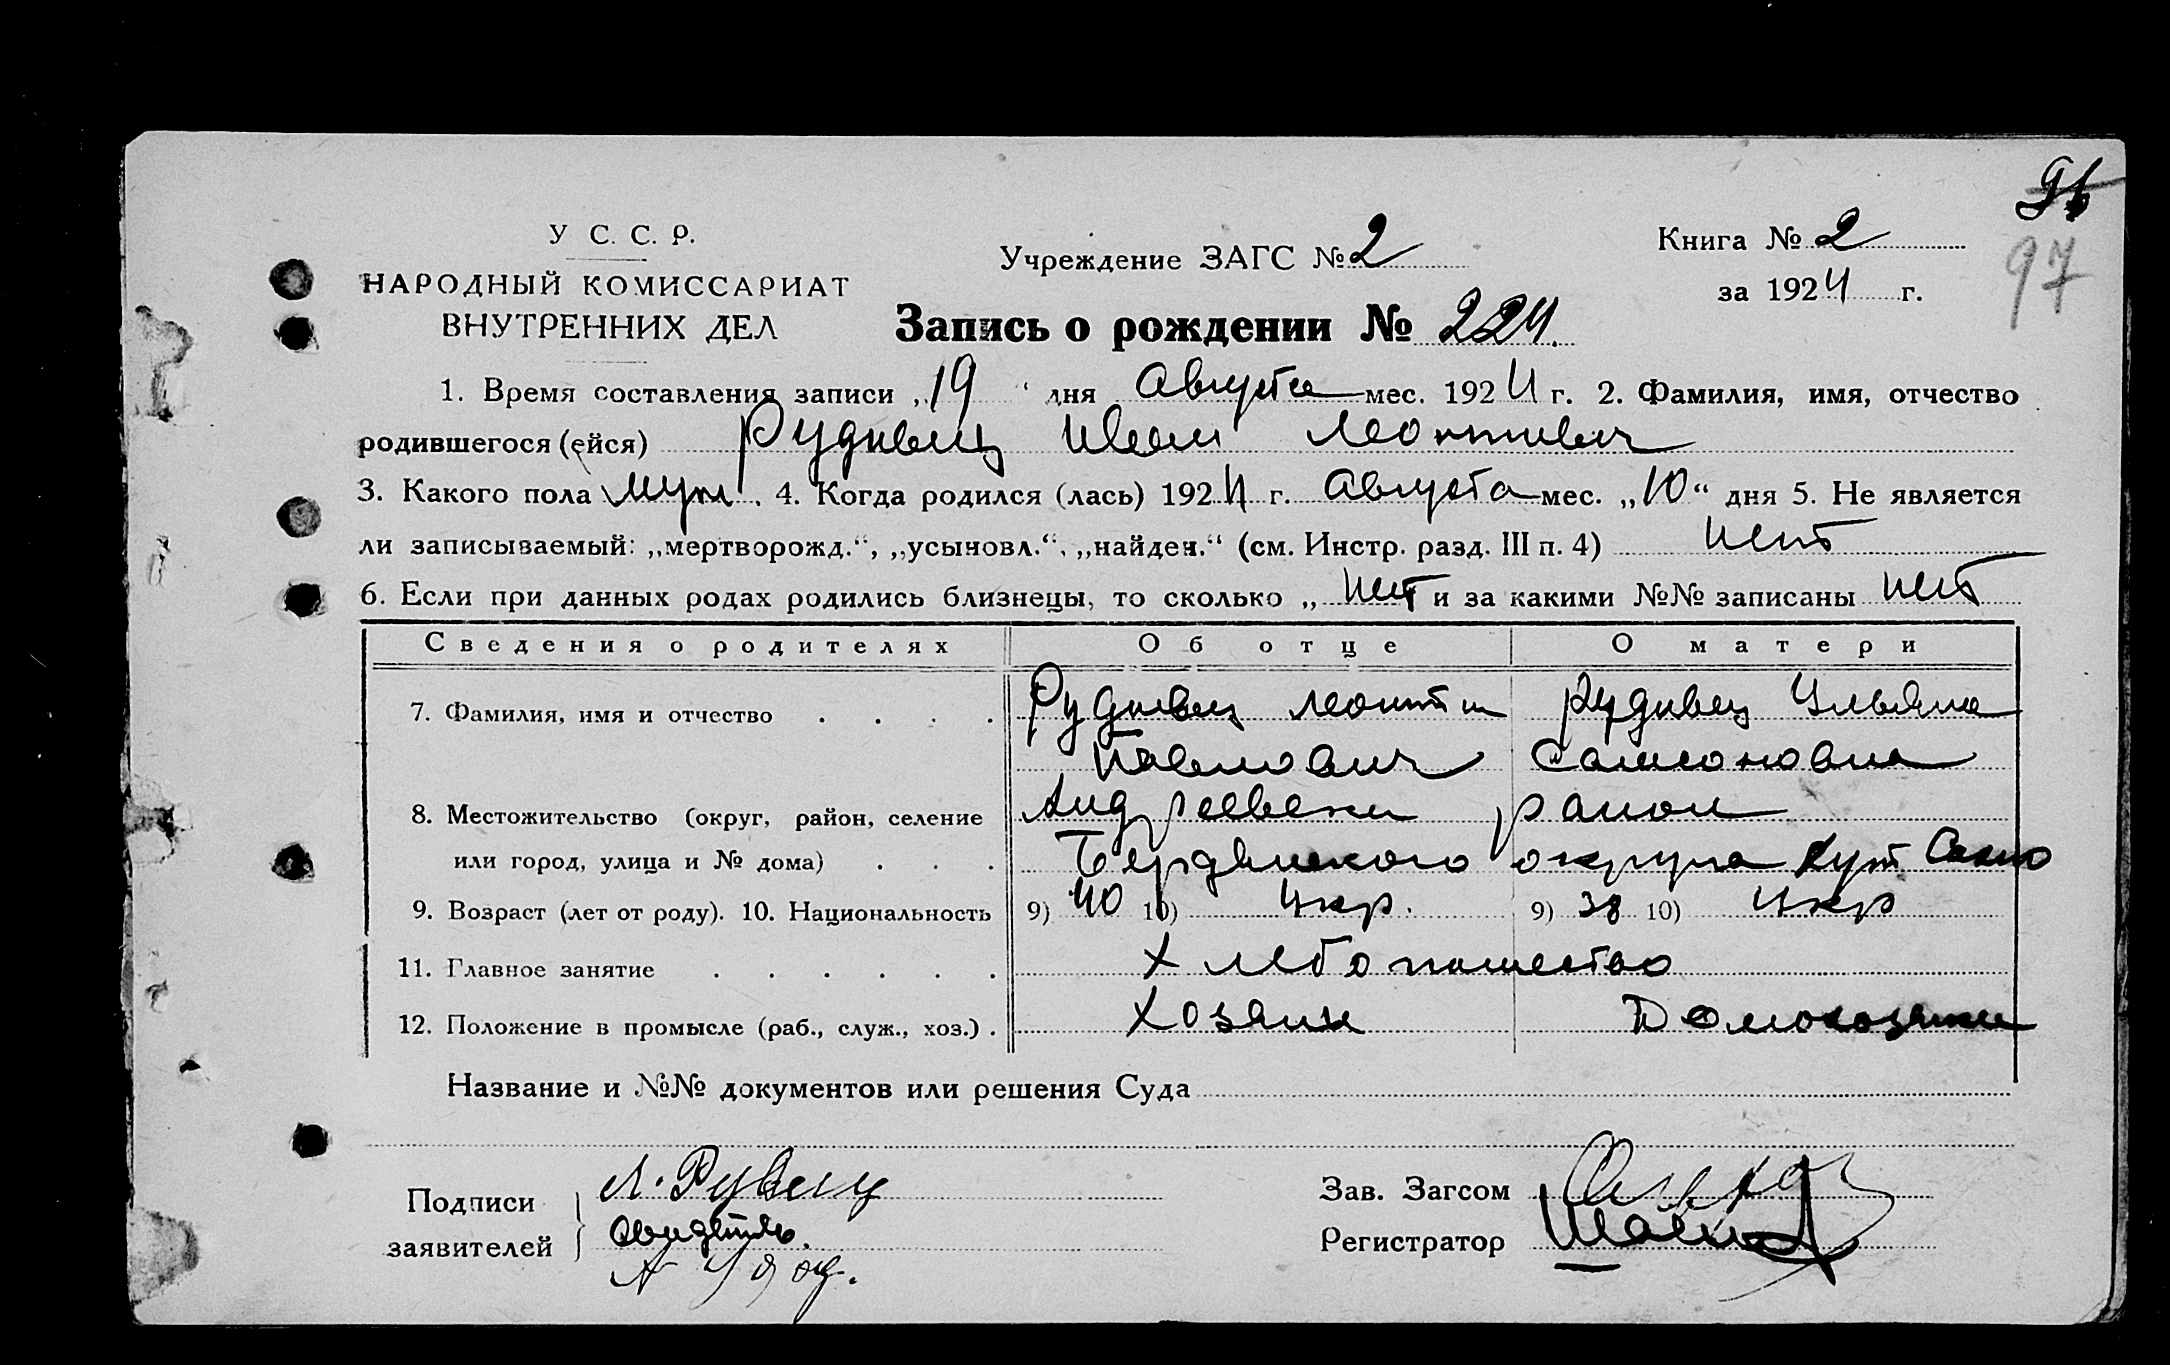 96
97
У С. С. Р.
НАРОДНЫЙ КОМИССАРИАТ
ВНУТРЕННИХ ДЕЛ
Учреждение ЗАГС № 2
Книга № 2
за 1924 г.
Запись о рождении № 224.
1. Время составления записи „19“ дня Августа мес. 1924 г. 2. Фамилия, имя, отчество
родившегося (ейся) Рудивец Иван Леонтиевич
3. Какого пола муж. 4. Когда родился (лась) 1924 г. Августа мес. „10“ дня 5. Не является
ли записываемый: „мертворожд.“, „усыновл.“, „найден.“ (см. Инстр. разд. III п. 4) нет
6. Если при данных родах родились близнецы, то сколько „ нет и за какими №№ записаны нет
Сведения о родителях Об отце О матери
7. Фамилия, имя и отчество . . . . Рудивец Леонтий Рудивец Ульяна
Павлович Самсоновна
8. Местожительство (округ, район, селение Андреевски район
или город, улица и № дома) . . . Бердянского округа Хут.
9. Возраст (лет от роду). 10. Национальность 9) 40 10) Укр. 9) 38 10) Укр
11. Главное занятие . . . . . . Хлебопашество
12. Положение в промысле (раб., служ., хоз.) . Хозяин Домохозяйка
Название и №№ документов или решения Суда
Подписи
заявителей
Л. Рувец
Свидетель.
Зав. Загсом
Регистратор